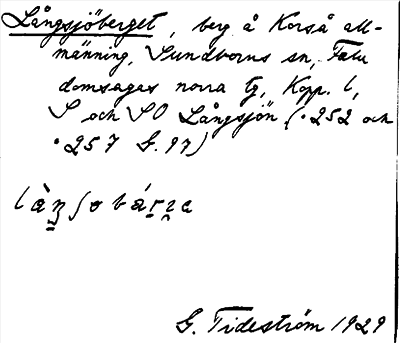 Långsjöberget, berg å Korså all-
männing, Sundborns sn, Falu
domsagas norra tg, Kopp. l,
S och SO Långsjön (•252 och
•257 G.97)
G. Tideström 1929